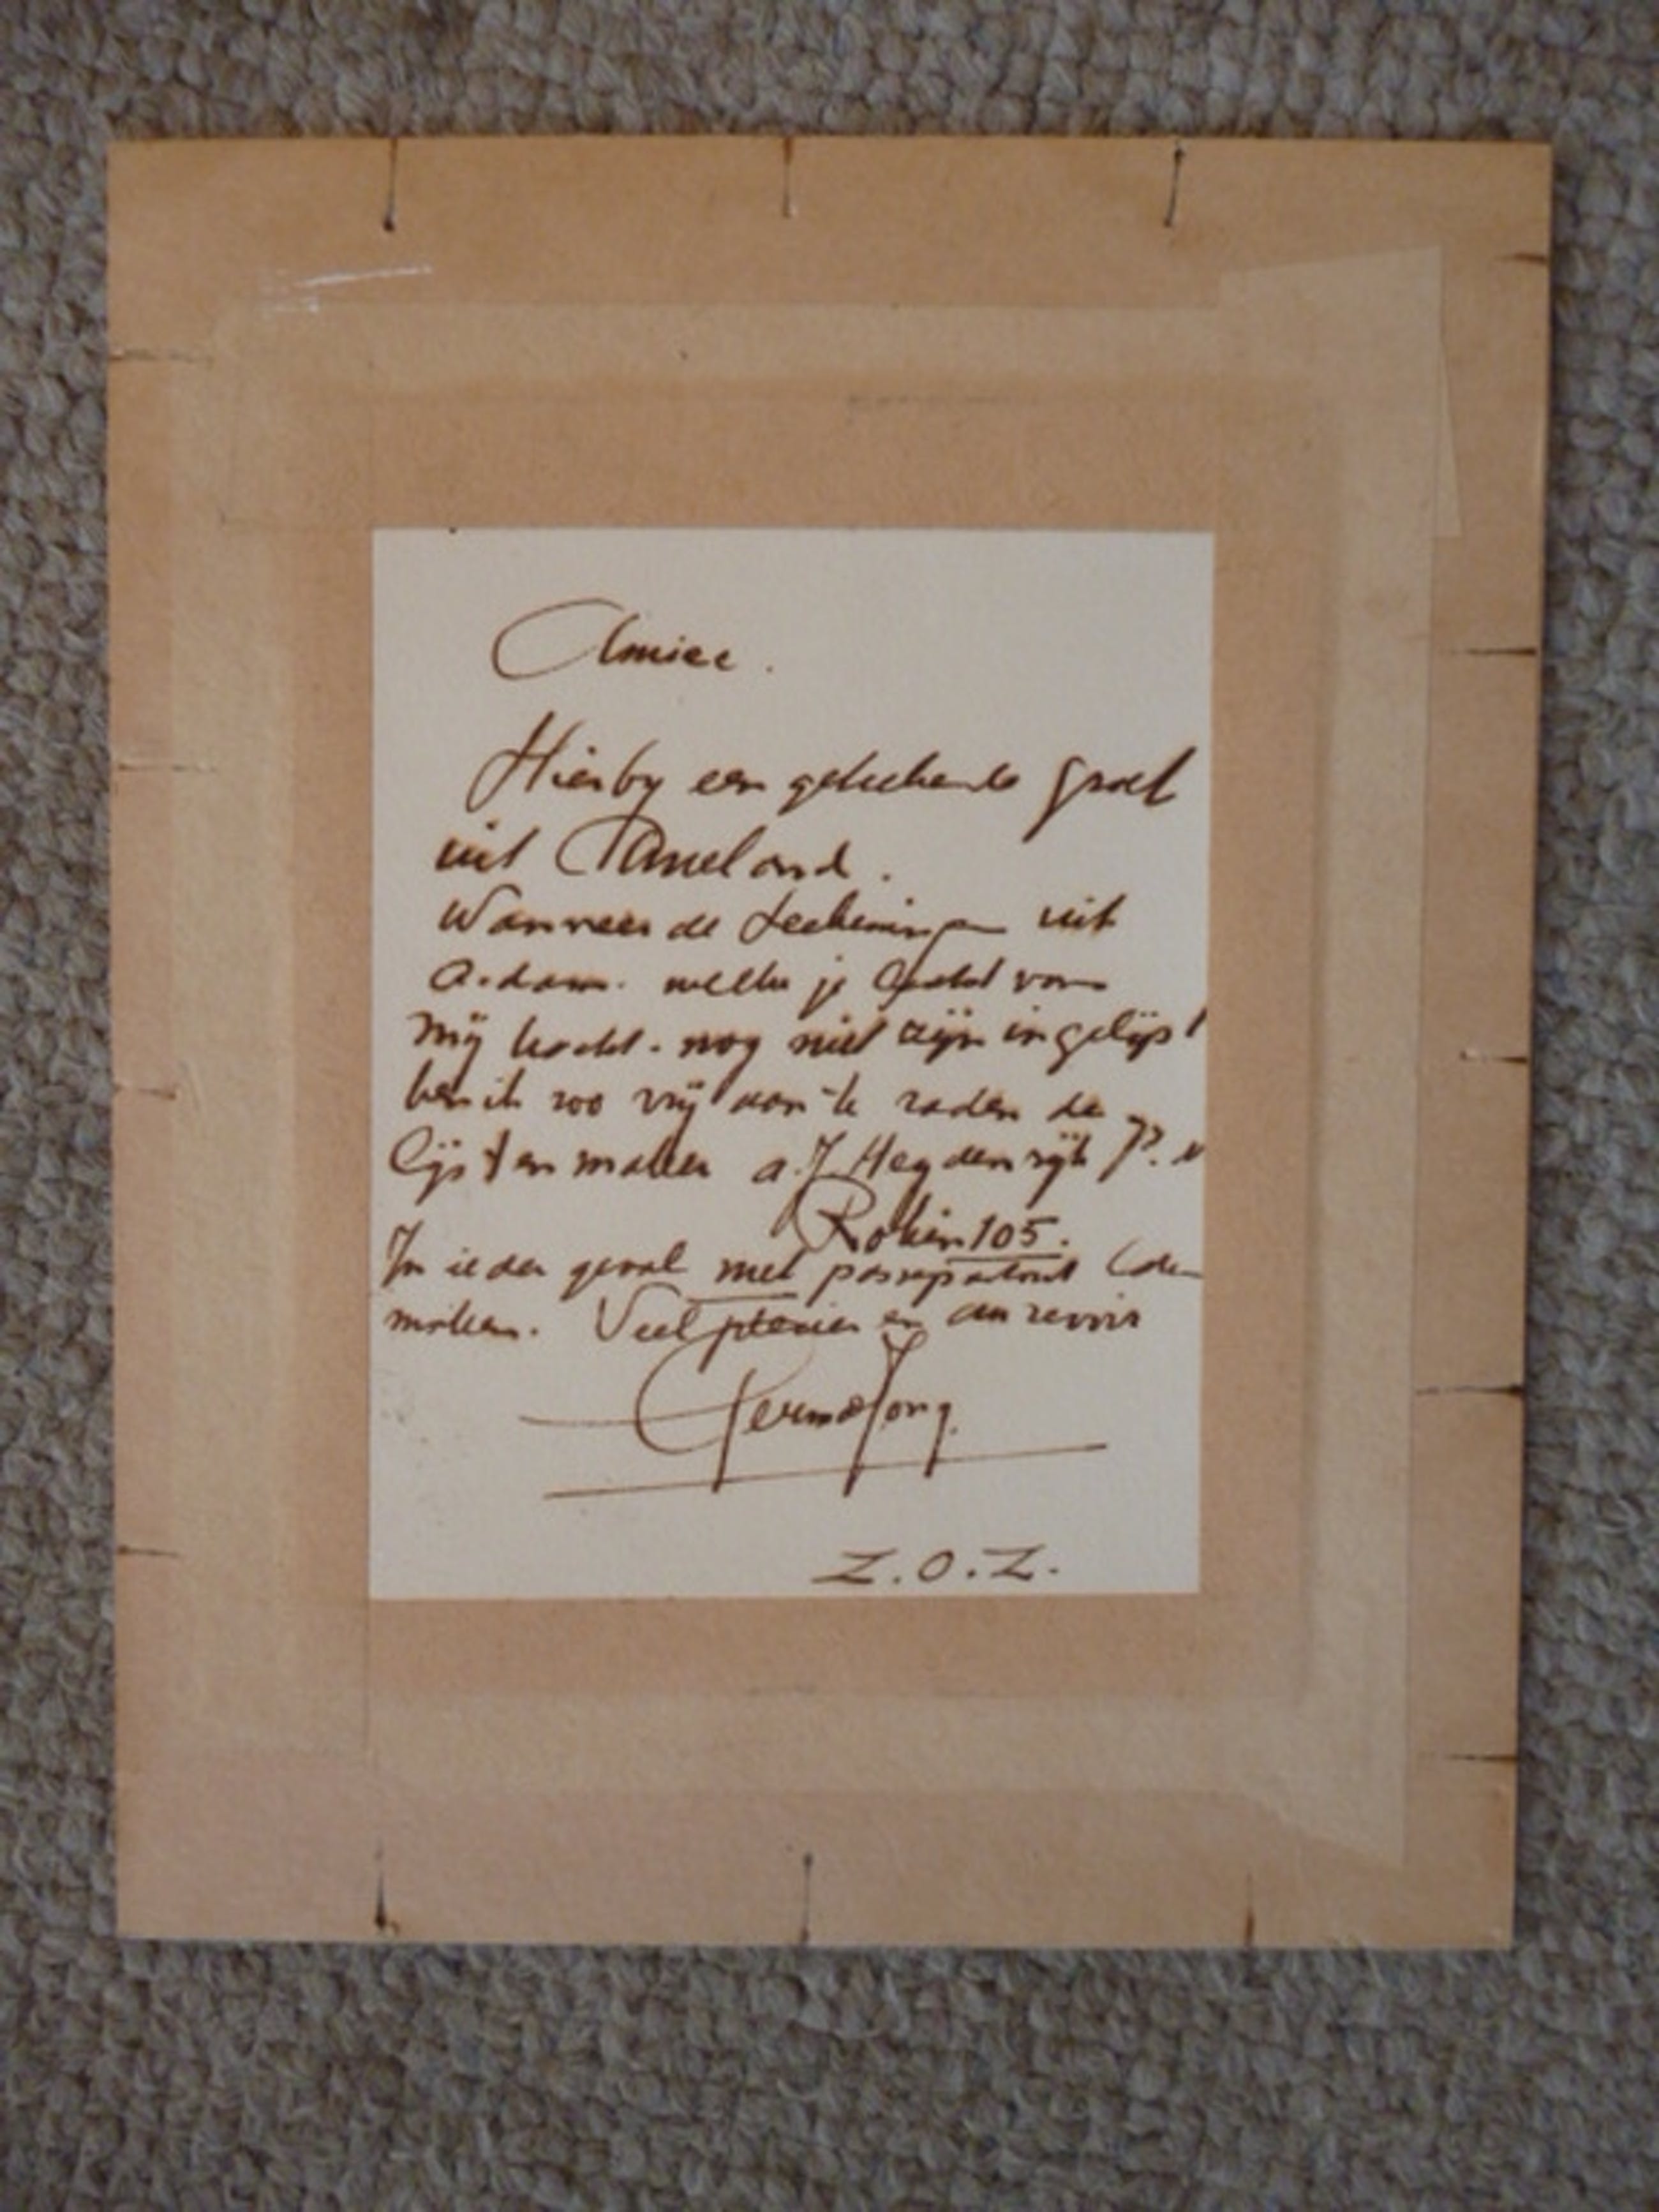 Amice.
Hierby een geteekende groet
uit Ameland.
Wanneer de teekeningen uit
A.dam. welke je laatst van
mij kocht. nog niet zijn ingelijst
ben ik zoo vrij aan te raden de
lijstenmaker a.J Heydenrijk
Rokin 105.
In ieder geval met passepartout laten
maken. Veel plezier en au revoir
Germ de Jong.
Z.O.Z.